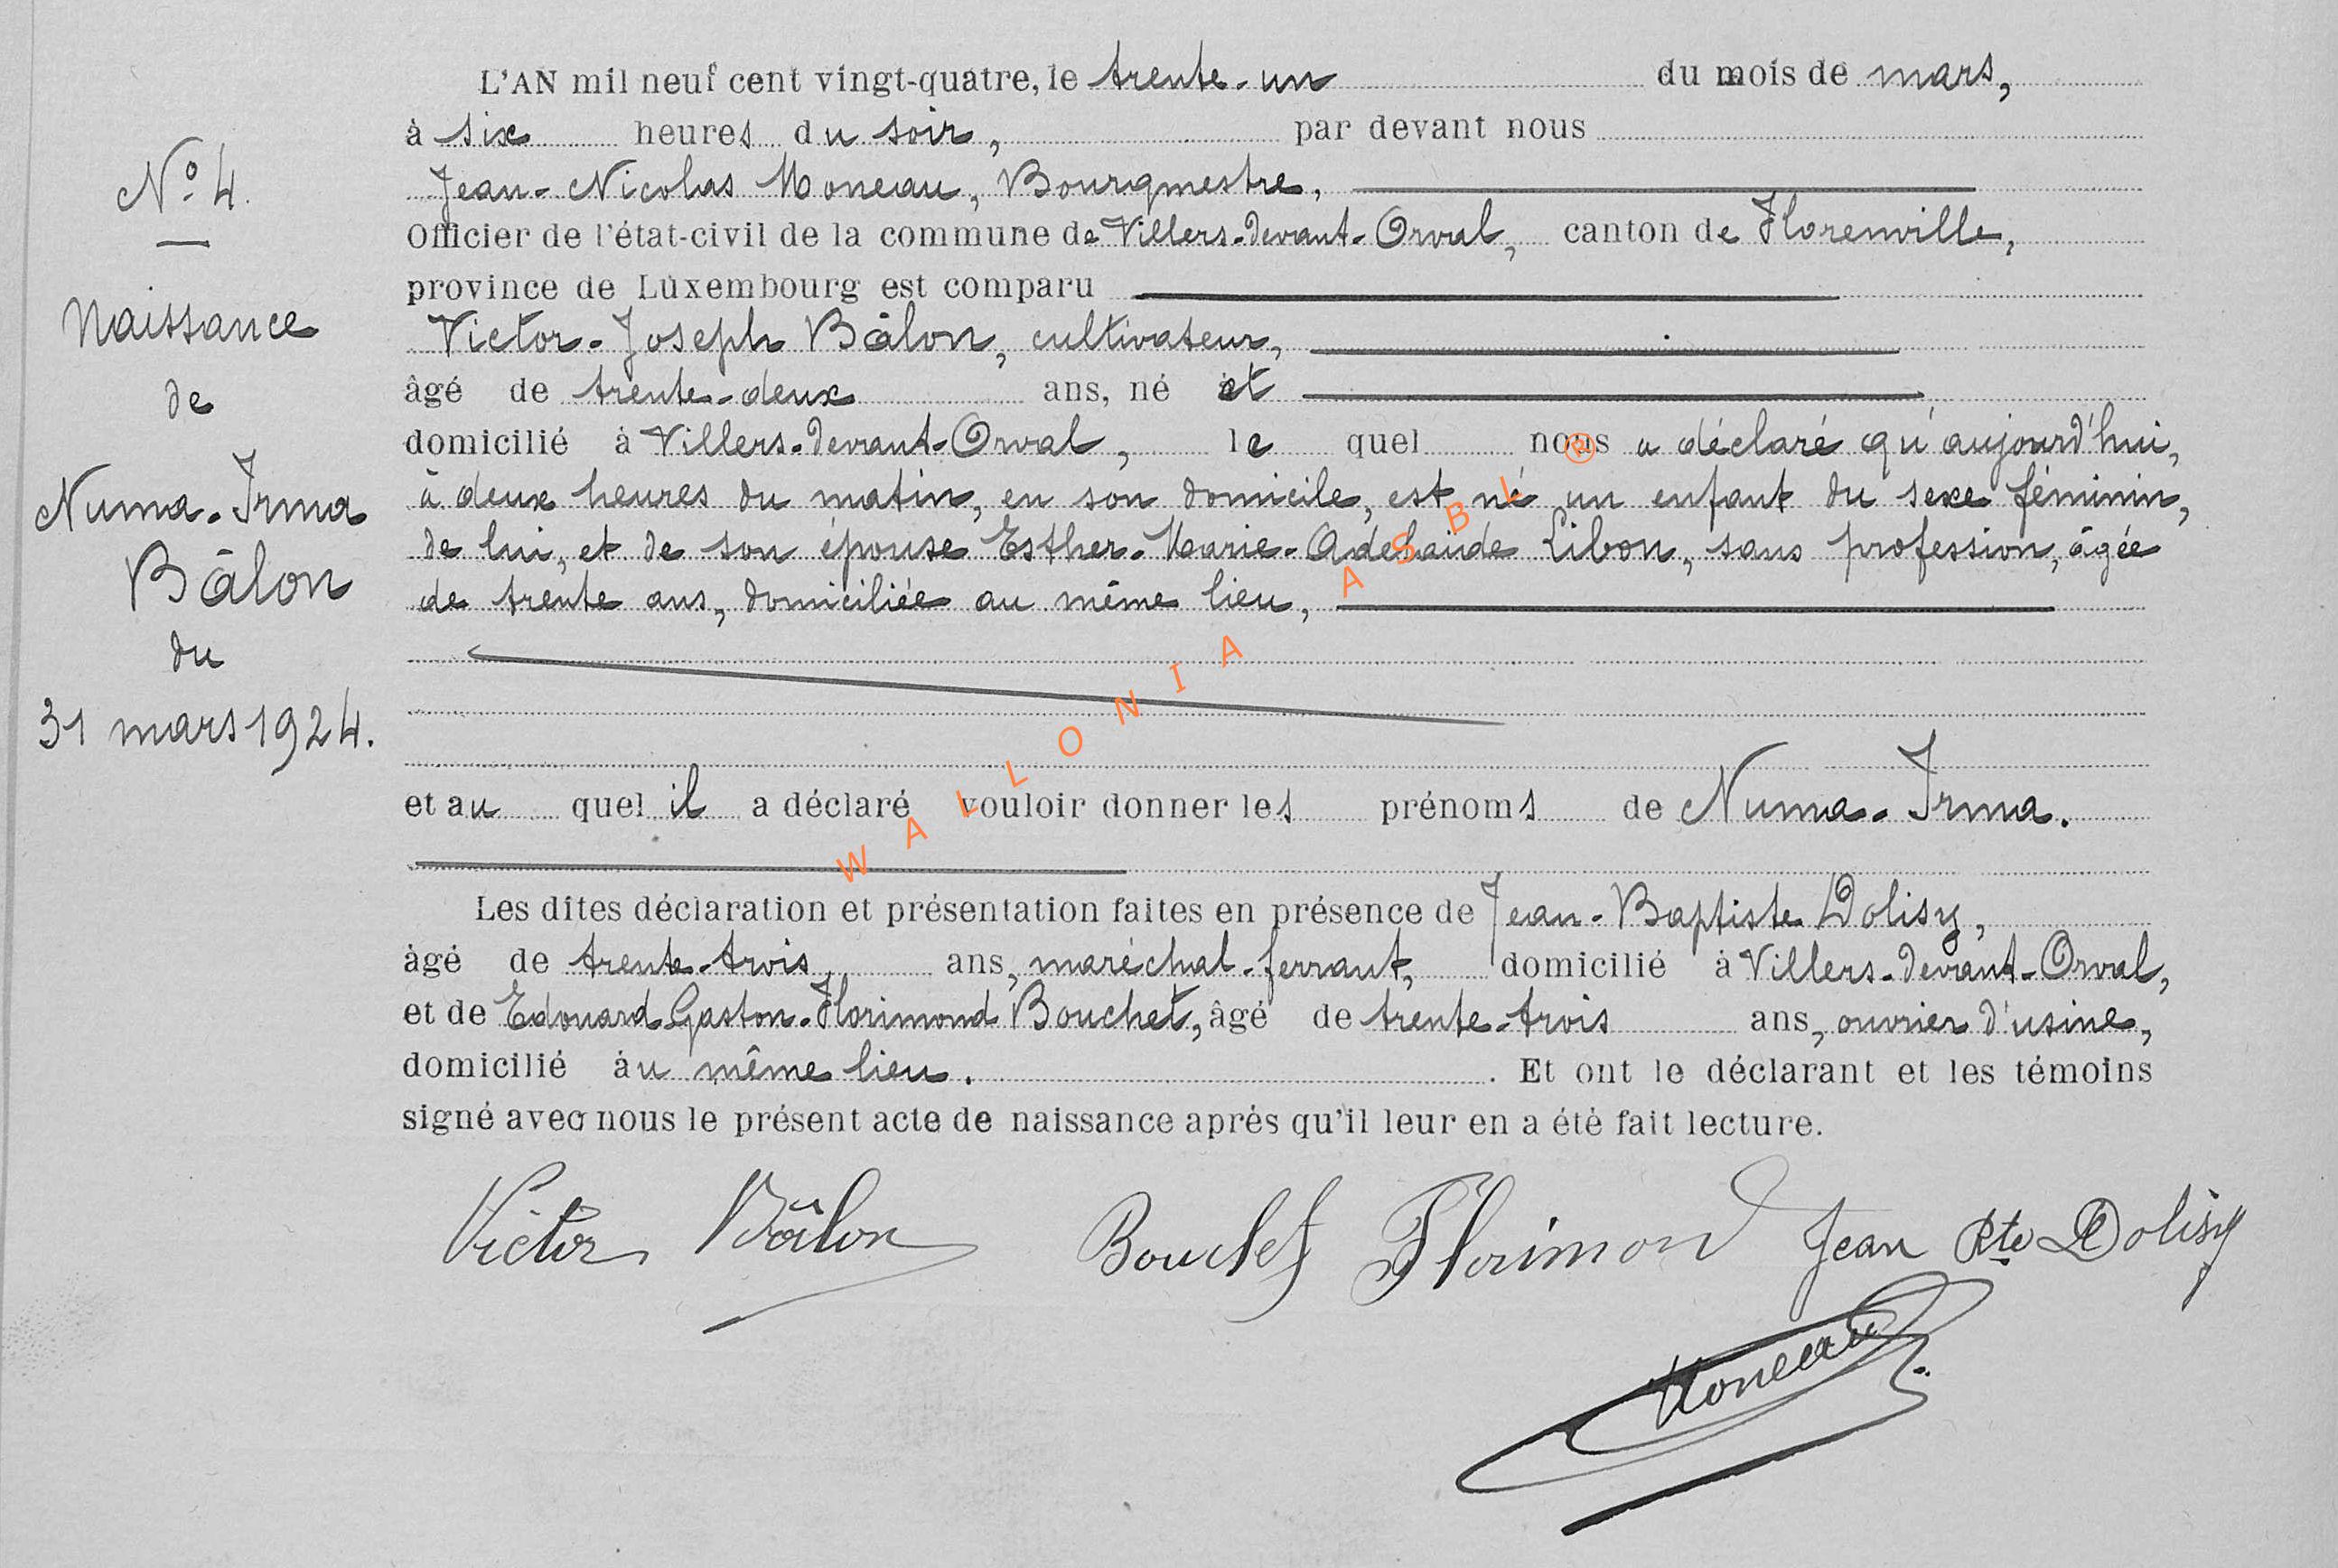 N° 4.
Naissance
de
Numa-Irma
Bâlon
du
31 mars 1924.
L'AN mil neuf cent vingt-quatre, le trente-un du mois de mars,
à six heures du soir, par devant nous
Jean-Nicolas Moneau, Bourgmestre,
Officier de l'état-civil de la commune de Villers-devant-Orval, canton de Florenville,
province de Luxembourg est comparu
Victor-Joseph Bâlon, cultivateur,
âgé de trente-deux ans, né et
domicilié à Villers-devant-Orval, le quel nous a déclaré qu'aujourd'hui,
à deux heures du matin, en son domicile, est né un enfant du sexe féminin,
de lui, et de son épouse Esther-Marie-Adelaïde Libon, sans profession, âgée
de trente ans, domiciliée au même lieu,
et au quel il a déclaré vouloir donner les prénoms de Numa-Irma.
Les dites déclaration et présentation faites en présence de Jean-Baptiste Dolisy,
âgé de trente-trois, ans, maréchal-ferrant, domicilié à Villers-devant-Orval,
et de Edouard-Gaston-Florimond Bouchet, âgé de trente-trois ans, ouvrier d'usine,
domicilié àu même lieu. . Et ont le déclarant et les témoins
signé avec nous le présent acte de naissance après qu'il leur en a été fait lecture.
Victor Bâlon Bouchet Florimond Jean Bte Dolisy
Moneau
WALLONIA ASBL ®